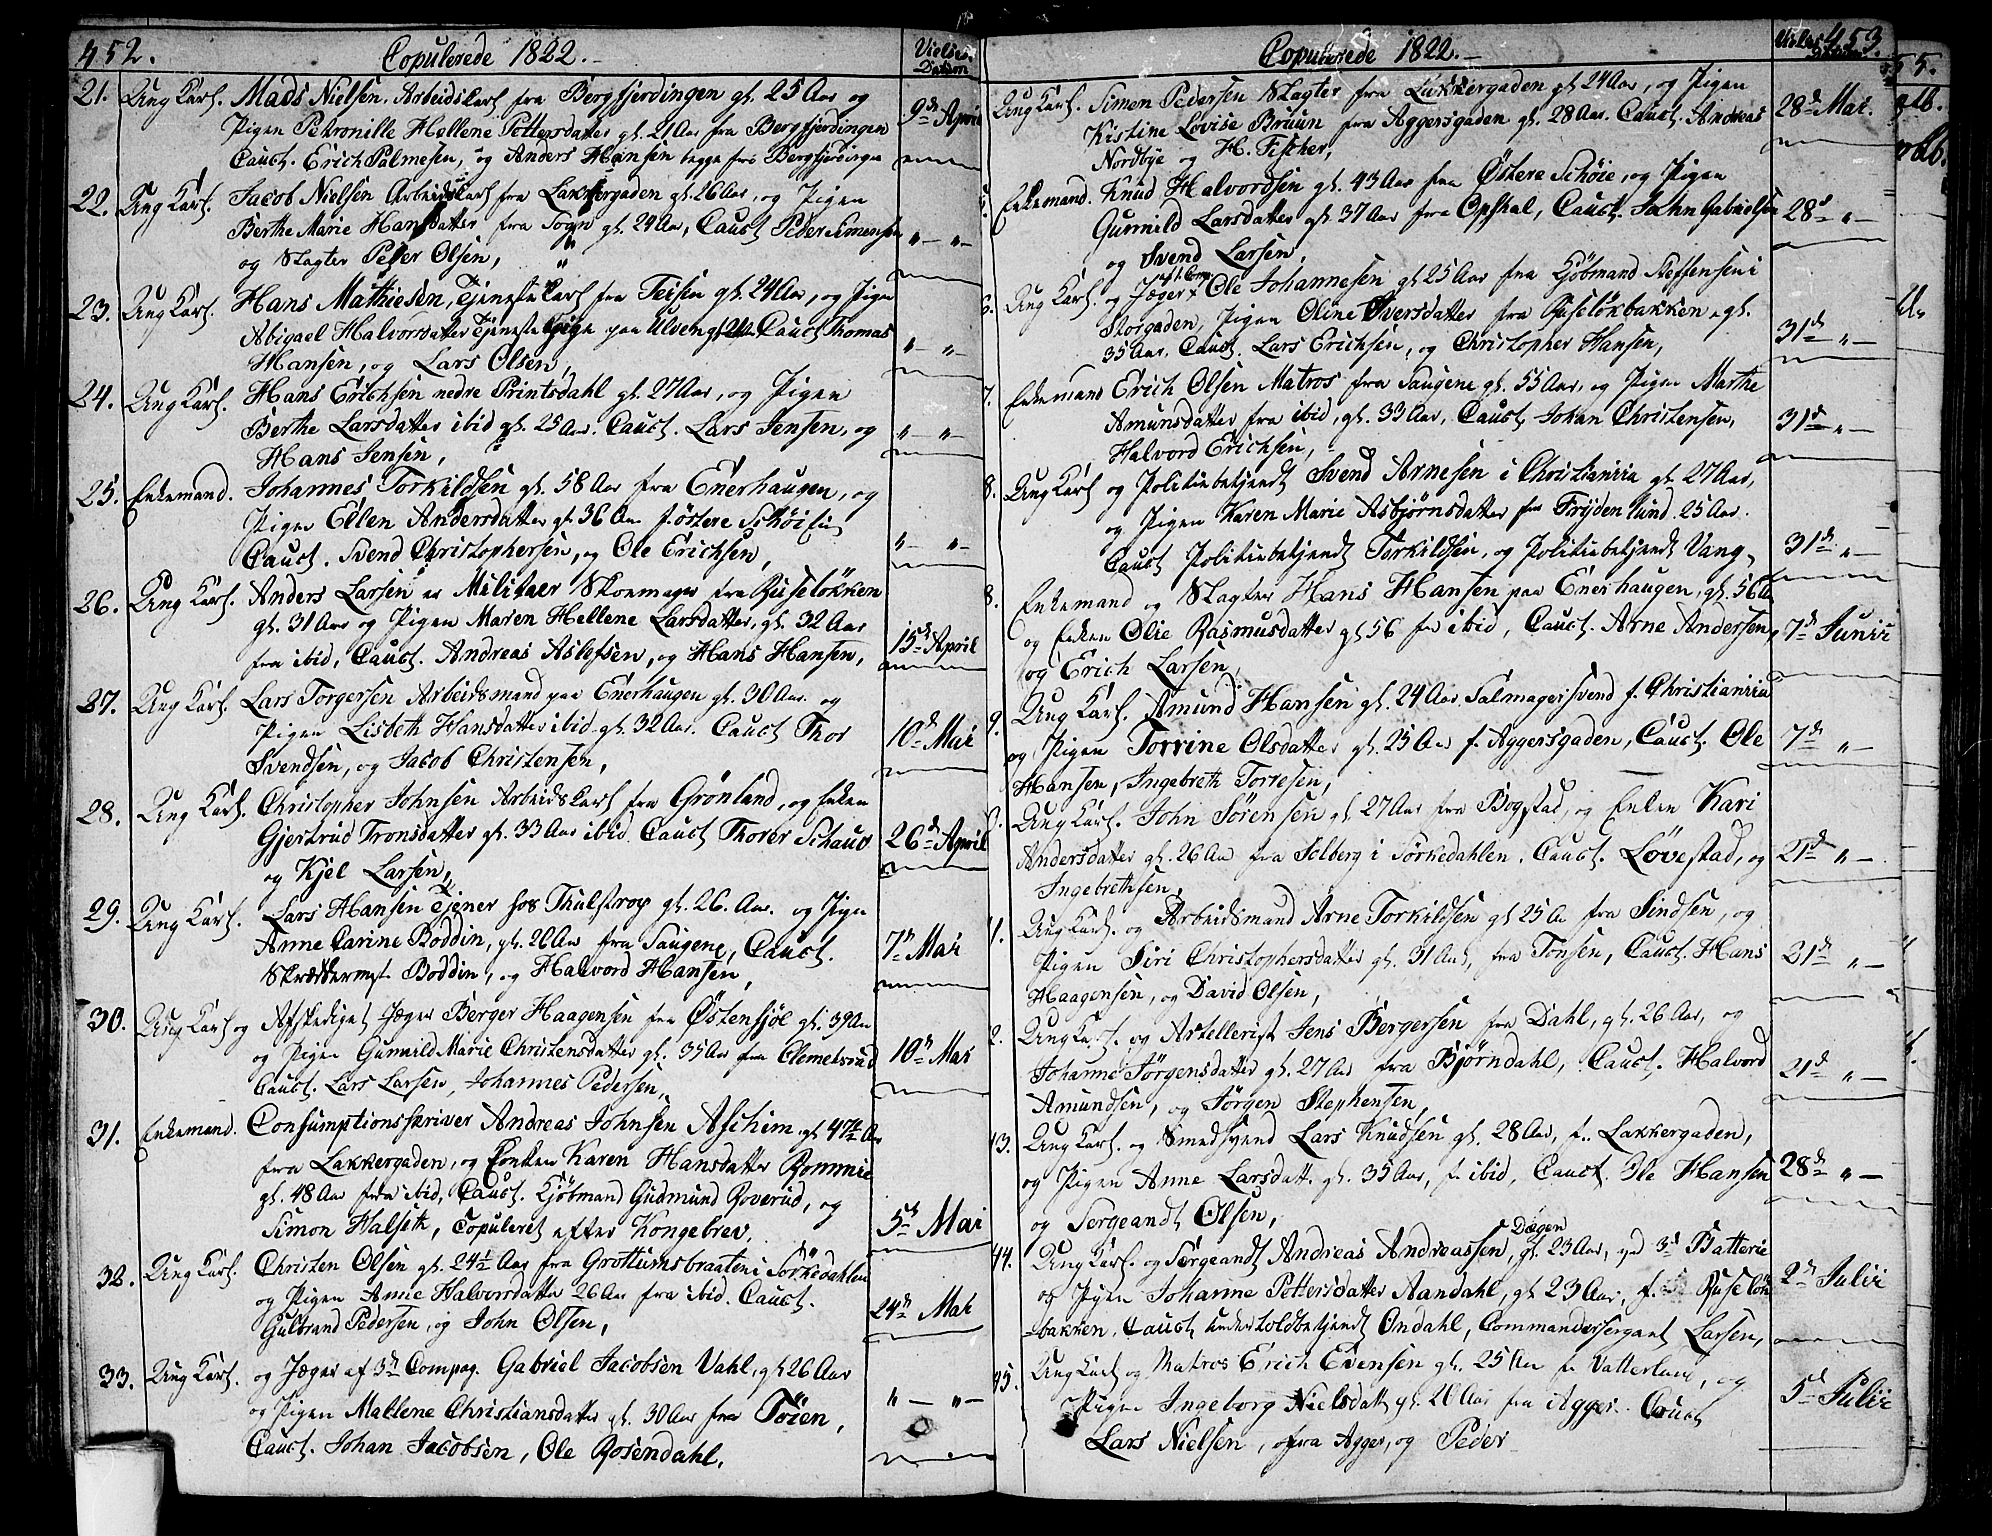 452. Copulerede 1822. Vielses Datum
21. Ung Karl. Mads Nielsen. Arbeidskarl fra Bergfjerdingen gl. 25 Aar og
Pigen Petronille Hellene Pettersdatter gl. 21 Aar fra Bergfjerdingen 9de April
Cauct. Erich Palmesen, og Anders Hansen begge fra Bergfjerdingen
22. Ung Karl. Jacob Nielsen Arbeidskarl fra Lakkergaden gl. 26 Aar, og Pigen
Berthe Marie Hansdatter fra Sogn gl. 24 Aar, Cauct Peder Simensen „ — „ —
og Slagter Peter Olsen,
23. Ung Karl. Hans Mathiesen, Tjenestekarl fra Teisen gl. 24 Aar, og Pigen
Abigael Halvorsdatter Tjenestepige paa Ulven gl. Cauct Thomas
Hansen, og Lars Olsen, „ — „ —
24. Ung Karl. Hans Erichsen nedre Printsdahl gl. 27 Aar, og Pigen
Berthe Larsdatter ibid gl. 25 Aar. Cauct. Lars Jensen, og „ — „ —
Hans Jensen,
25. Enkemand. Johannes Torkildsen gl. 58 Aar fra Enerhaugen, og
Pigen Ellen Andersdatter gl. 36 Aar f. östere Schöien
Cauct. Svend Christophersen, og Ole Erichsen, „ — „ —
26. Ung Karl. Anders Larsen er Militaer Skoemager fra Ruseløkken
gl. 31 Aar og Pigen Maren Hellene Larsdatter, gl. 32 Aar
fra ibid, Cauct. Andreas Aslefsen, og Hans Hansen, 15de April
27. Ung Karl. Lars Torgersen Arbeidsmand paa Enerhaugen gl. 30 Aar. og
Pigen Lisbeth Hansdatter ibid gl. 32 Aar. Cauct Thor 10de Mai
Svendsen, og Jacob Christensen,
28. Ung Karl. Christopher Johnsen Arbeidskarl fra Grönland, og Enken
Gjertrud Tronsdatter gl. 33 Aar ibid Cauct Thorer Schaug 26de April
og Kjel Larsen,
29. Ung Karl. Lars Hansen Tjener hos Thulstrop gl. 26. Aar. og Pigen
Anne Carine Boddin, gl. 20 Aar fra Saugene, Cauct. 7de Mai
Skræddermst Boddin, og Halvord Hansen,
30. Ung Karl og Afskediget Jæger Berger Haagensen fra Østensjöe gl. 39 Aar
og Pigen Gunnild Marie Christensdatter gl. 35 Aar fra Clemetsrud 10de Mai
Cauct. Lars Larsen, Johannes Pedersen,
31. Enkemand. Consumptionsskriver Andreas Johnsen Aschim gl 47½ Aar
fra Lakkergaden, og Enken Karen Hansdatter Rommie
gl. 48 Aar fra ibid, Cauct. Kjöbmand Gudmund Roverud, og
Simon Halseth, Copuleret efter Kongebrev. 5te Mai
32. Ung Karl. Christen Olsen gl. 24½ Aar fra Grottumsbraaten i Sörkedahlen
og Pigen Anne Halvorsdatter 26 Aar fra ibid. Cauct. 24de Mai
Gulbrand Pedersen, og John Olsen,
33. Ung Karl. og Jæger af 3de Compag. Gabriel Jacobsen Vahl, gl 26 Aar
og Pigen Mallene Christiansdatter gl. 30 Aar fra Töien, „ — „ —
Cauct. Johan Jacobsen, Ole Rosendahl.
Copulerede 1822. Vielses Datum 453.
Ung Karl. Simen Pedersen Slagter fra Lakkergaden gl. 24 Aar, og Pigen
Kistine Lovise Bruun fra Aggersgaden gl. 28 Aar. Cauct. Andreas 28de Mai.
Nordbye og H. Fischer,
5. Enkemand. Knud Halvordsen gl. 43 Aar fra Østere Schöie, og Pigen
Gunnild Larsdatter gl. 37 Aar fra Opshal, Cauct. Jahn Gabrielsen 28de „ —
og Svend Larsen,
6. Ung Karl. og Jæger Ole Johannesen gl. 25 Aar fra Kjöbmand Steffensen i
Storgaden, Pigen Oline Iversdatter fra Ruseløkbakken, gl.
35 Aar. Cauct. Lars Erichsen, og Christopher Hansen, 31de „ —
7. Enkemand Erich Olsen Matros fra Saugene gl. 55 Aar, og Pigen Marthe
Amunsdatter fra ibid, gl. 33 Aar, Cauct, Johan Christensen, 31de „ —
Halvord Erichsen,
8. Ung Karl og Politiebetjendt Svend Arnesen i Christiania gl. 27 Aar,
og Pigen Karen Marie Asbjørnsdatter fra Frydenlund. 25 Aar.
Cauct Politiebetjendt Torkildsen, og Politiebetjendt Vang, 31de „ —
8. Enkemand og Slagter Hans Hansen paa Enerhaugen, gl. 56 A
og Enken Olie Rasmusdatter gl 56 fra ibid, Cauct. Arne Andersen, 7de Junii
og Erich Larsen,
9. Ung Karl. Amund Hansen gl. 24 Aar Salmagersvend f. Christiania
og Pigen Torrine Olsdatter gl. 25 Aar f. Aggersgaden, Cauct. Ole 7de „ —
Hansen, Ingebreth Torresen,
Ung Karl. John Sörensen gl. 27 Aar fra Bogstad, og Enken Kari
Andersdatter gl. 26 Aar fra Solberg i Sörkedahlen. Cauct. Lövestad, og 21de „ —
Ingebrethsen,
1. Ung Karl. og Arbeidsmand Arne Torkildsen gl 25 Aar fra Sindsen, og
Pigen Siri Christophersdatter gl. 31 Aar, fra Tonsen, Cauct. Hans 21de „ —
Haagensen, og David Olsen,
2. Ung Karl. og Artellerist Jens Bergersen fra Dahl, gl. 26 Aar, og
Johanne Jörgensdatter gl. 27 Aar fra Bjørndahl, Cauct. Halvord 21de „ —
Amundsen, og Jörgen Stephensen,
43. Ung Karl. og Smedsvend Lars Knudsen gl. 28 Aar, f. Lakkergaden,
og Pigen Anne Larsdatt. gl. 35 Aar, f. ibid, Cauct. Ole Hansen 28de „ —
og Sergeandt Olsen,
44. Ung Karl. og Sergeandt Andreas Andreassen, gl. 23 Aar, ved 3de Batterie
og Pigen Johanne Pettersdatter Aandahl, gl 23 Aar, f. Ruseløk 2de Julii
-bakken. Cauct, Underholdbetjendt Ondahl, Commandersergant Larsen,
45. Ung Karl og Matros Erich Evensen gl. 25 Aar f. Vatterland, og
Pigen Ingeborg Nielsdatt, gl 20 Aar fra Agger. Cauct 5te Julii
Lars Nielsen, fra Agger, og Peder
55.